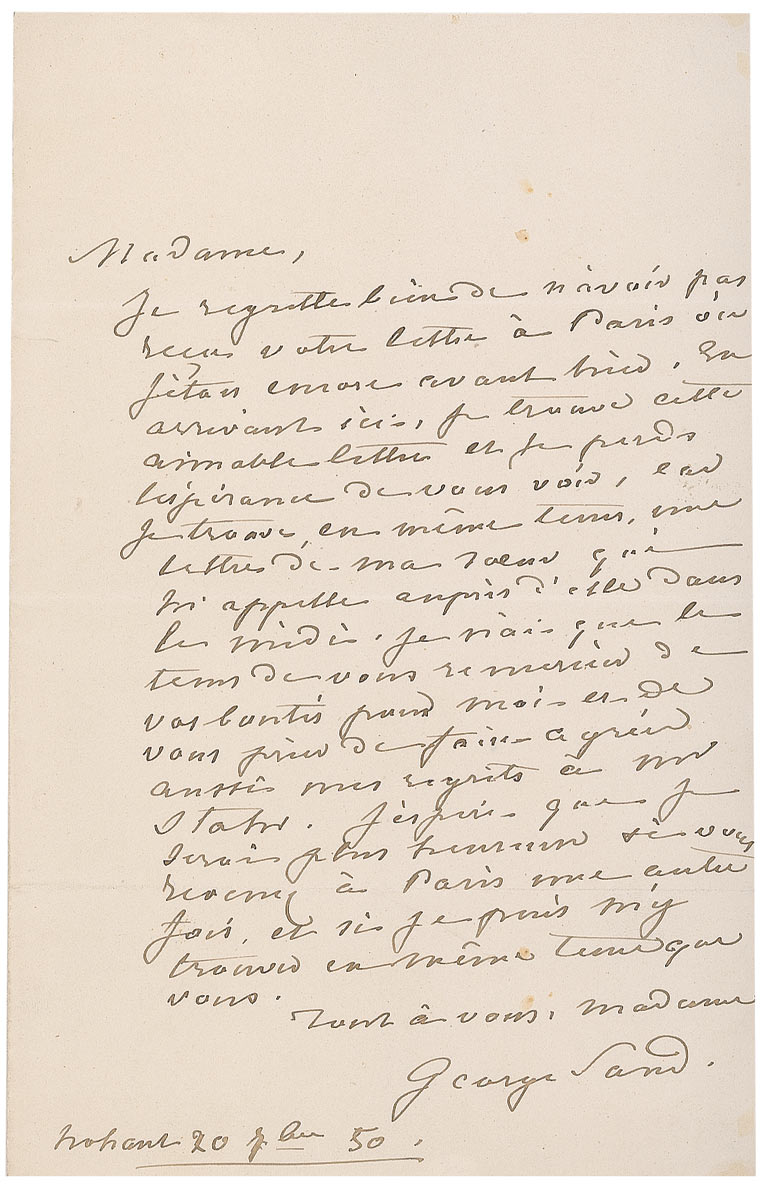 Madame,
Je regrette bien de n'avoir pas
reçu votre lettre à Paris où
j'étais encore avant hier. En
arrivant ici, je trouve cette
aimable lettre et je perds
l'espérance de vous voir, car
je trouve, en même tems, une
lettre de ma sœur qui
m'appelle auprès d'elle dans
le midi. Je n'ai que le
tems de vous remercier de
vos bontés pour moi et de
vous prier de faire agréer
aussi mes regrets à Mr
Stahr. J'espère que je
serai plus heureuse si vous
revenez à Paris une autre
fois, et si je puis m'y
trouver en même tems que
vous.
Tout à vous, madame
George Sand.
Nohant 20 7bre 50.